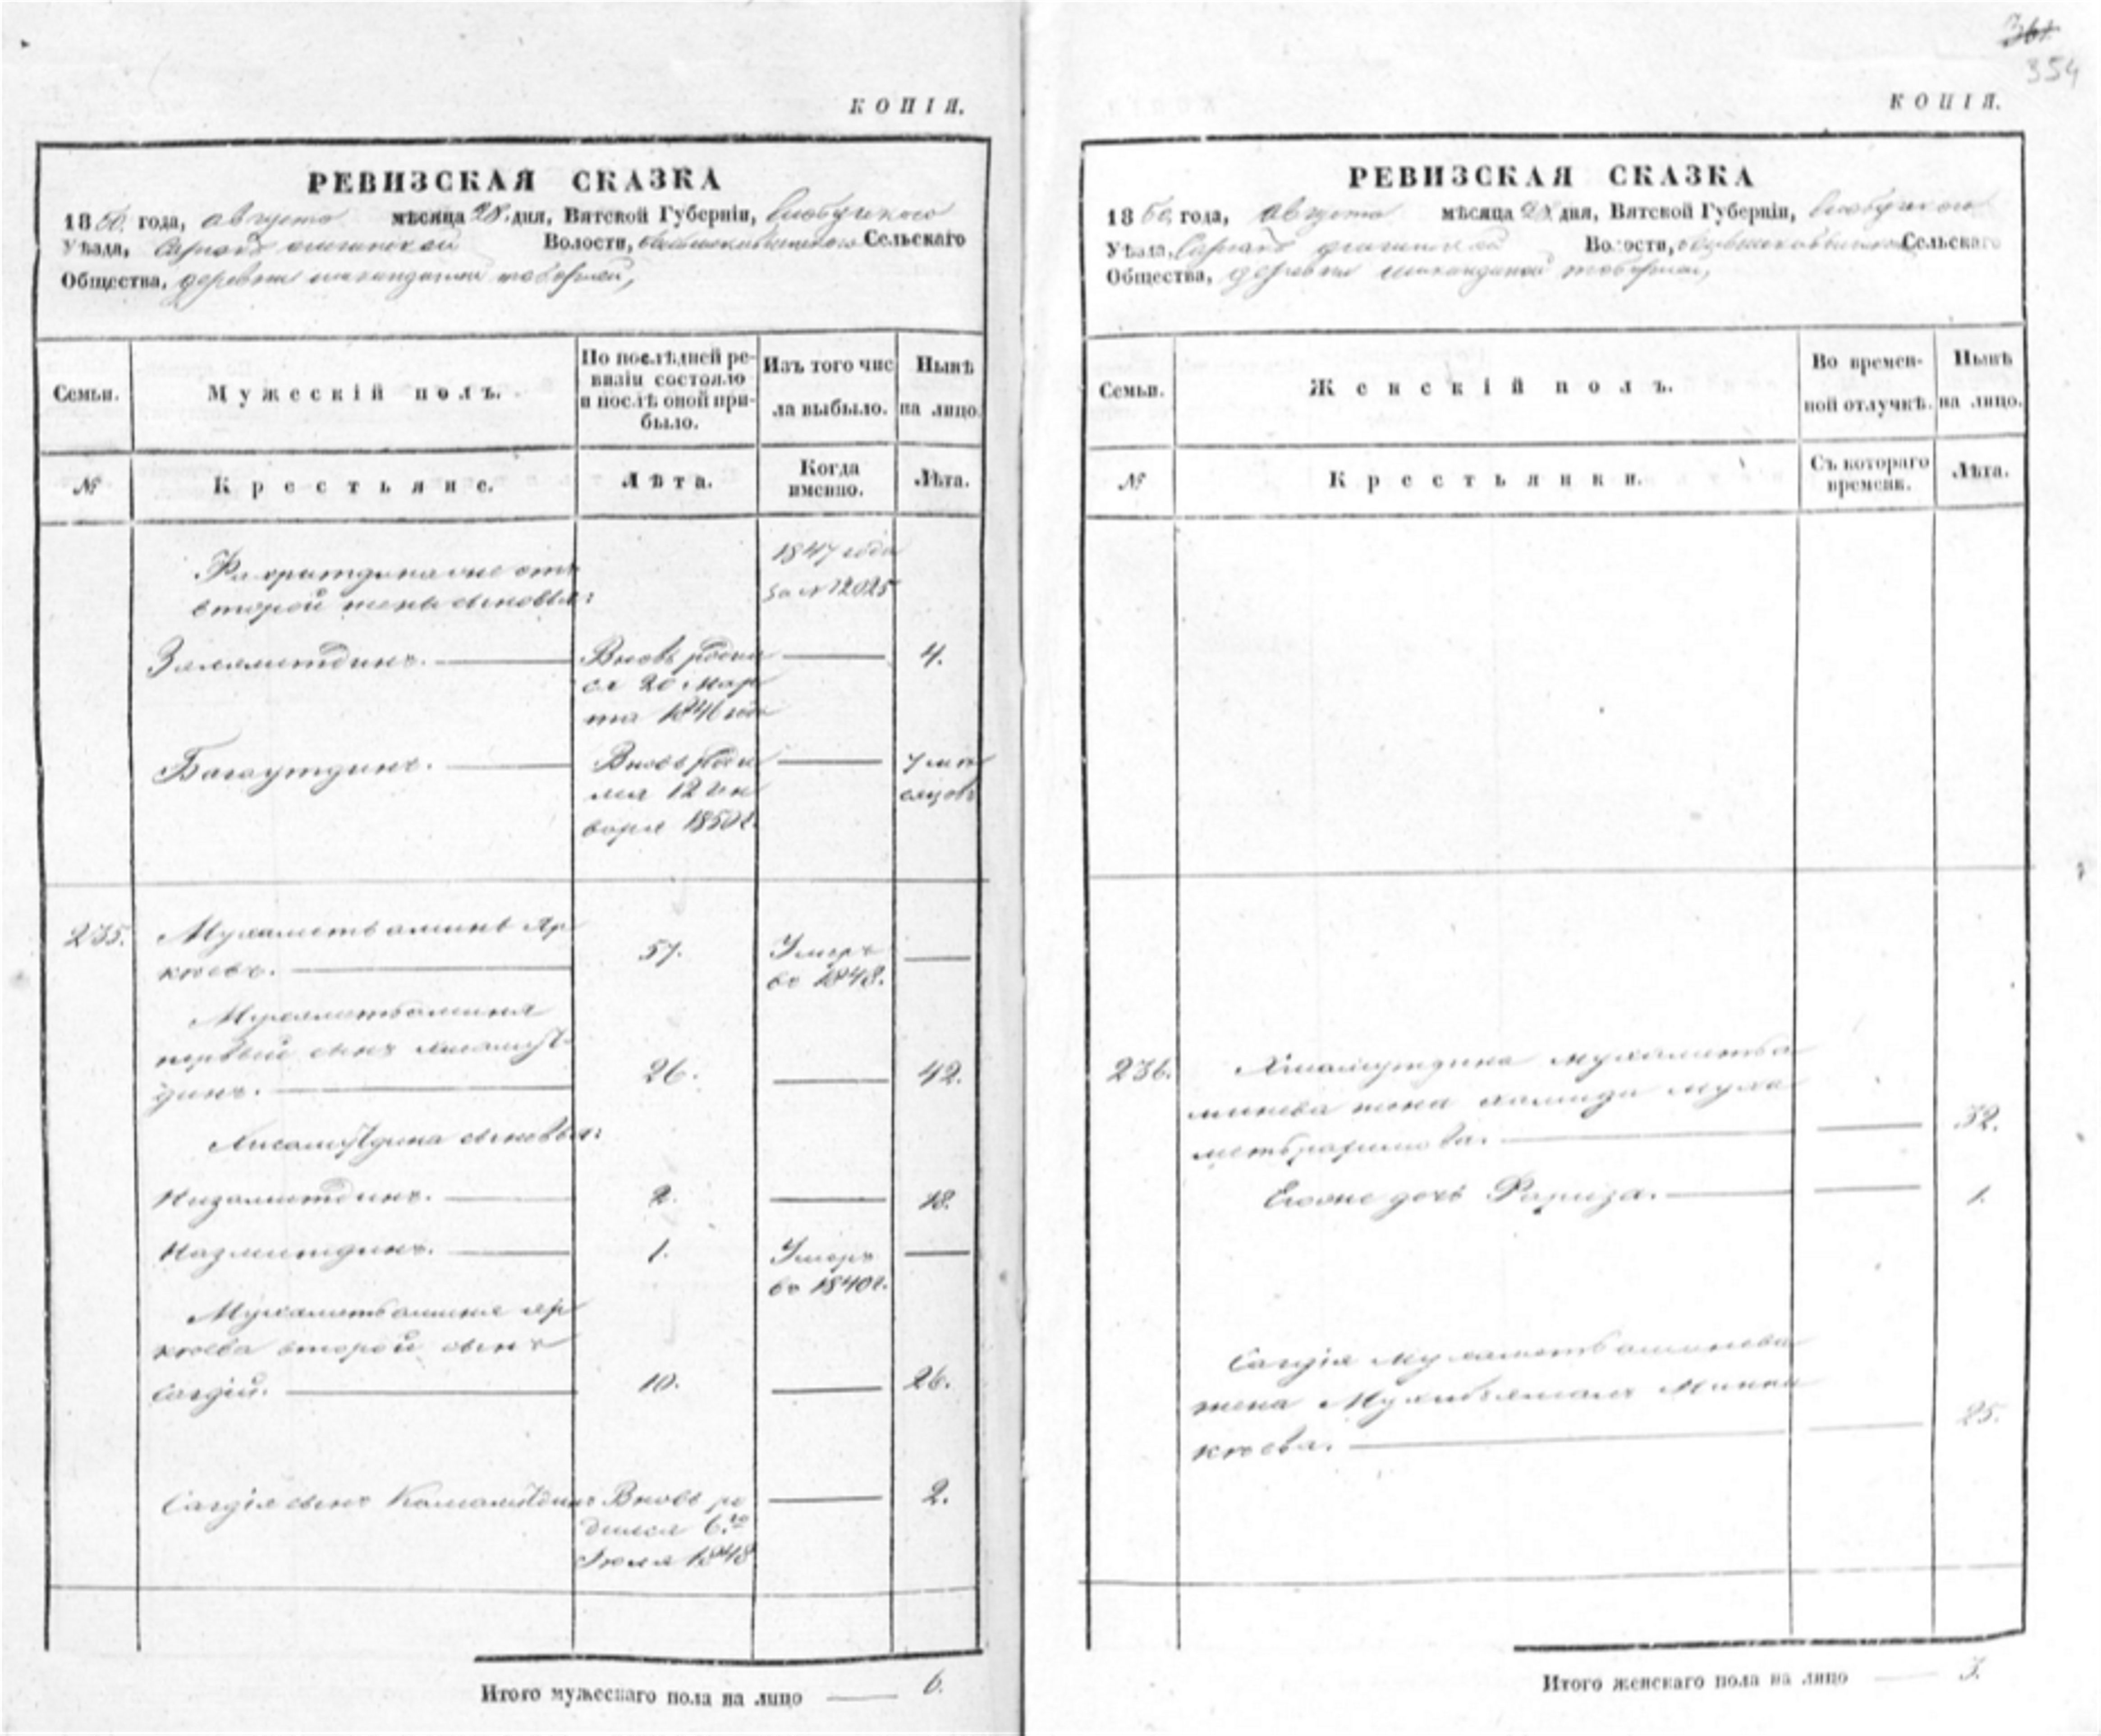 361
354
КОПІЯ.
РЕВИЗСКАЯ СКАЗКА
1850. года, августа мѣсяца 28. дня, Вятской Губерніи,
Уѣзда, Волости, Сельскаго
Общества, деревни
Семьи.
Мужескій полъ.
По послѣдней ре-
визіи состояло
и послѣ оной при-
было.
Изъ того чис
ла выбыло.
Нынѣ
на лицо.
№
Крестьяне.
Лѣта.
Когда
именно.
Лѣта.
Фахритдина оне отъ
второй жены сыновья:
1847 года
за №12025
Зялялитдинъ.
Вновь родил
ся 20 мар
та 1846 года
4.
Багаутдинъ.
Вновь роди
лся 12 ян
варя 1850 г.
7 мѣ
сяцовъ
235.
Мухаметъ аминъ Яр
кеевъ.
57.
Умеръ
въ 1848.
Мухаметьаминя
первый сынъ
динъ.
26.
42.
сыновья:
Низамитдинъ.
2.
18.
Назмитдинъ.
1.
Умеръ
въ 1840 г.
Мухаметьаминя яр
кеева второй сынъ
Сагдій.
10.
26.
Сагдія сынъ
Вновь ро
дился 6.го
Іюля 1848
2.
Итого мужескаго пола на лицо 6.
КОПІЯ.
РЕВИЗСКАЯ СКАЗКА
1850. года, августа мѣсяца 28 дня, Вятской Губерніи,
Уѣзда, Волости, Сельскаго
Общества, деревни
Семьи.
Женскій полъ.
Во времен-
ной отлучкѣ.
Нынѣ
на лицо.
№
Крестьянки.
Съ котораго
времени.
Лѣта.
236.
мухаметьа
минева жена халида муха
метьрахимова.
32.
Егоже дочь Фариза.
1.
Сагдія мухаметьаминева
жена Минни
кеева.
25.
Итого женскаго пола на лицо 3.